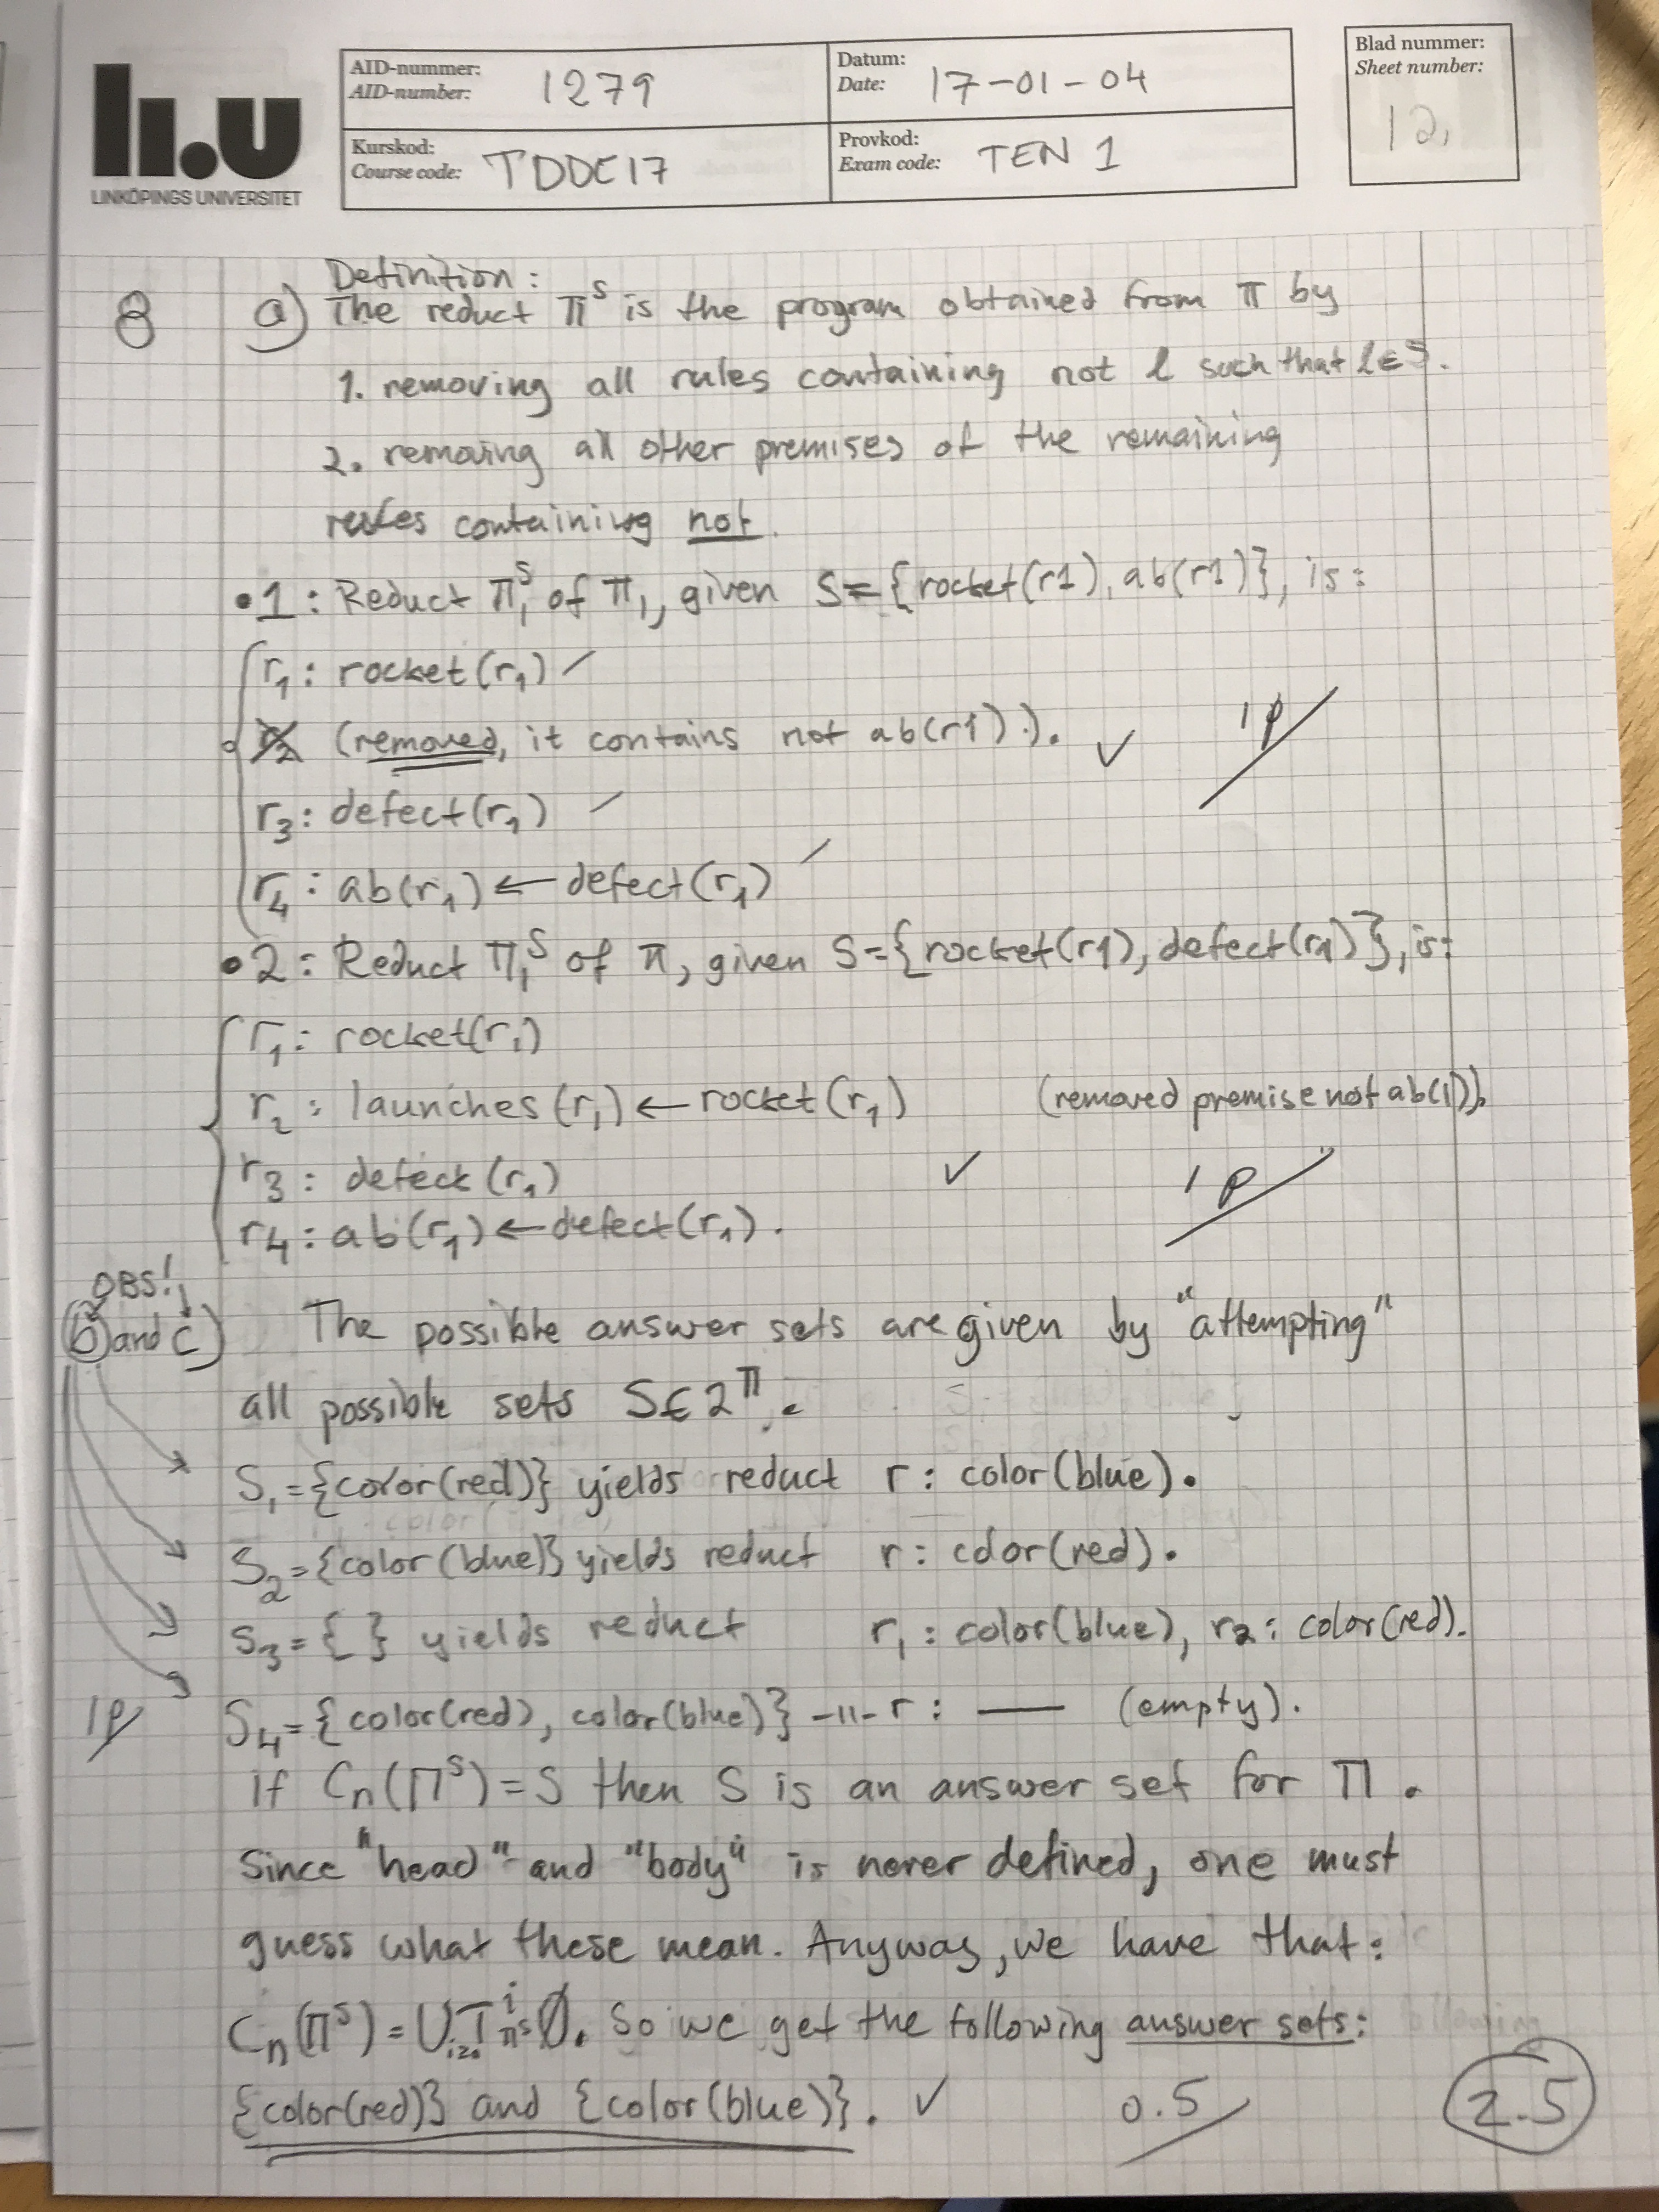 li.u
LINKÖPINGS UNIVERSITET
AID-nummer:
AID-number: 1279
Datum:
Date: 17-01-04
Blad nummer:
Sheet number:
12,
Kurskod:
Course code: TDDC17
Provkod:
Exam code: TEN 1
Definition:
8 a) The reduct Π^S is the program obtained from Π by
1. removing all rules containing not l such that l∈S.
2. removing all other premises of the remaining
rules containing not.
•1: Reduct Π₁^S of Π₁, given S={rocket(r1), ab(r1)}, is:
r₁: rocket(r₁)
r₂ (removed, it contains not ab(r1)). ✓ 1p
r₃: defect(r₁)
r₄: ab(r₁) ← defect(r₁)
•2: Reduct Π₁^S of Π, given S={rocket(r1), defect(r1)}, is:
r₁: rocket(r₁)
r₂: launches(r₁) ← rocket(r₁) (removed premise not ab(1)).
r₃: defect(r₁) ✓ 1p
r₄: ab(r₁) ← defect(r₁).
OBS!
b) and c) The possible answer sets are given by "attempting"
all possible sets S∈2^Π.
S₁={color(red)} yields reduct r: color(blue).
S₂={color(blue)} yields reduct r: color(red).
S₃={ } yields reduct r₁: color(blue), r₂: color(red).
1p S₄={color(red), color(blue)} -11- r: — (empty).
if Cn(Π^S)=S then S is an answer set for Π.
Since "head" and "body" is never defined, one must
guess what these mean. Anyway, we have that:
Cn(Π^S)=∪_{i≥0} T^i_{Π^S} ∅. So we get the following answer sets:
{color(red)} and {color(blue)}. ✓ 0.5 2.5